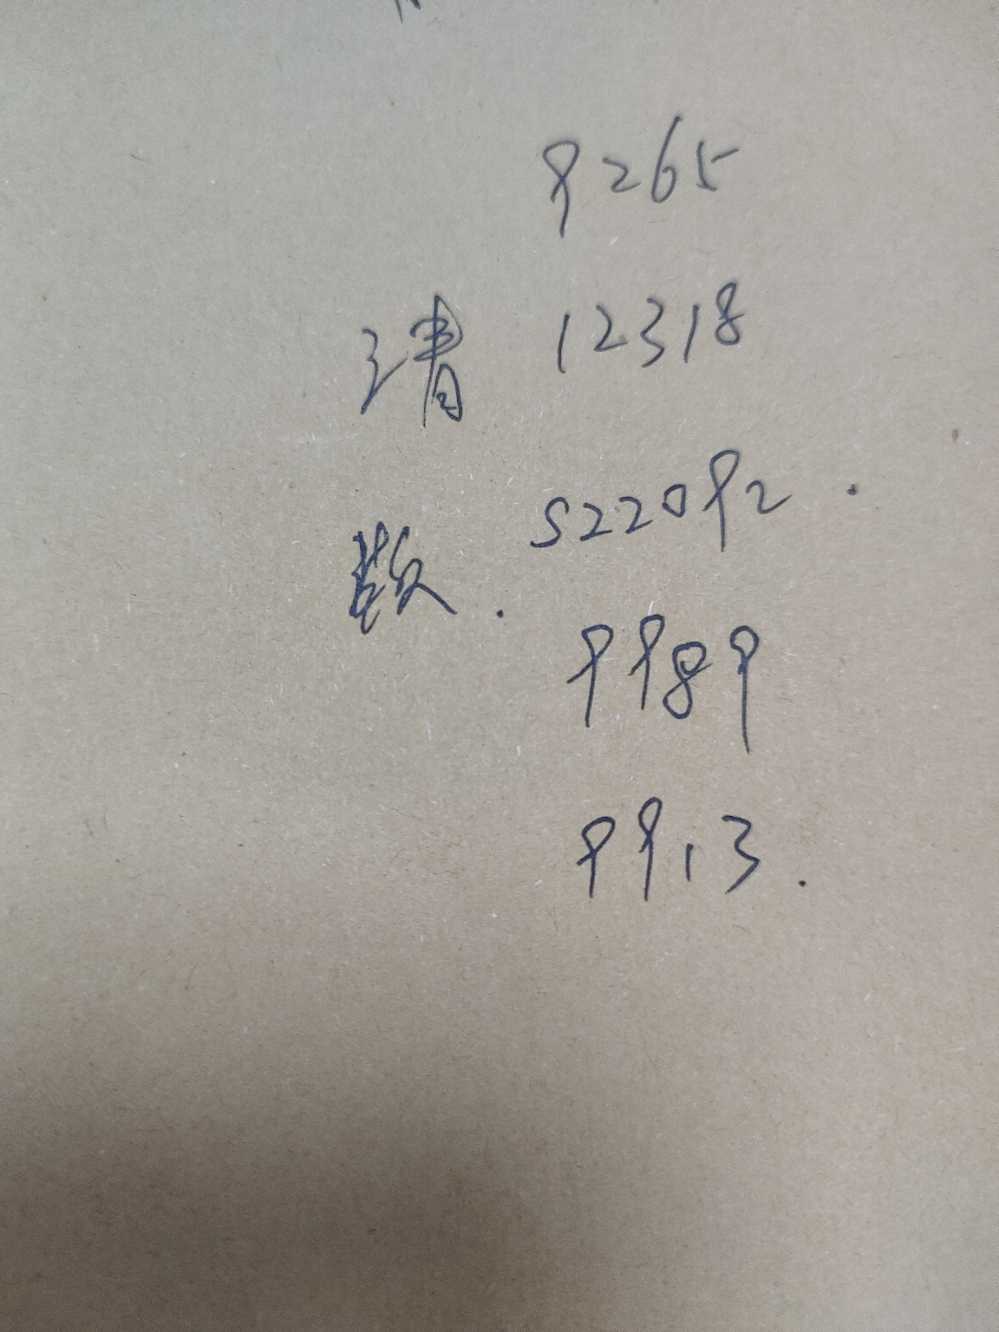 9265
清 12318
数. 522092.
9989
9913.